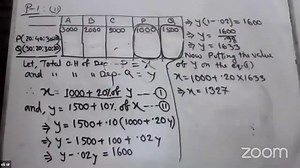 P-1: (ii)
A B C P Q
3000 2000 5000 1000 1500
P(20:40:30:10)
Q(30:20:30:20)
Let, Total O.H of Dep - P = x
and " " " Dep - Q = y
∴ x = 1000 + 20% of y — (i)
and, y = 1500 + 10% of x — (ii)
⇒ y = 1500 + .10 (1000 + .20y)
⇒ y = 1500 + 100 + .02y
⇒ y - .02y = 1600
⇒ y(1 - .02) = 1600
⇒ y = 1600
.98
⇒ y = 1633
Now Putting the value
of y on the eq. (i)
x = 1000 + .20 x 1633
⇒ x = 1327
zoom